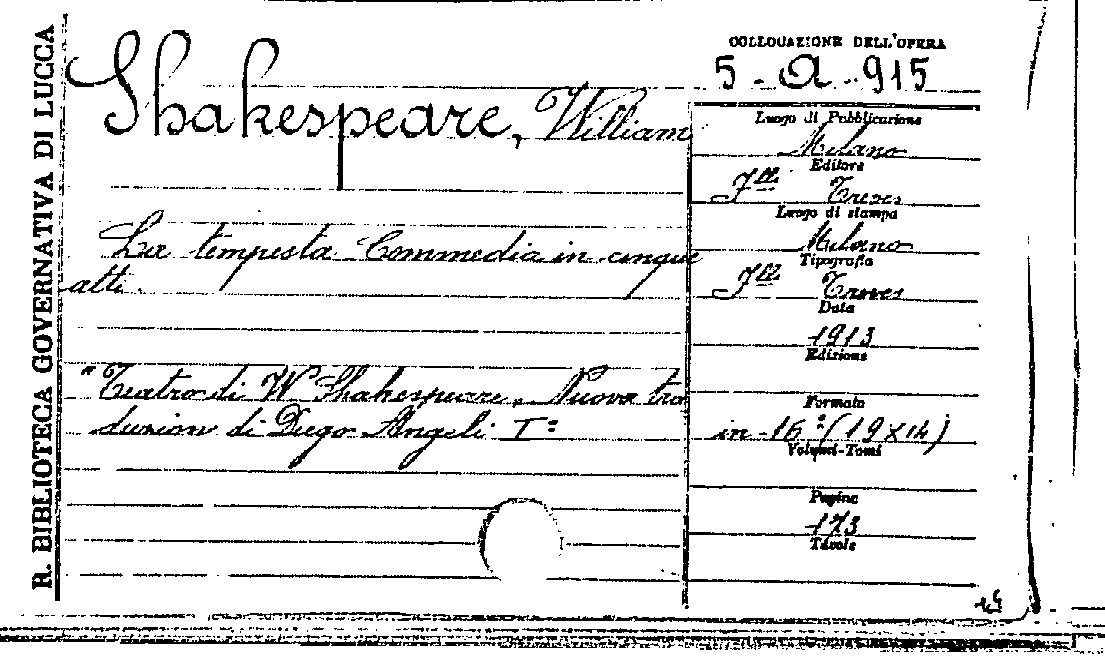 R. BIBLIOTECA GOVERNATIVA DI LUCCA
COLLOCAZIONE DELL'OPERA
5 - A - 915
Shakespeare, William
La tempesta Commedia in cinque
atti.
"Teatro di W Shakespeare, Nuova tra
duzion di Diego Angeli I=
Luogo di Pubblicazione
Milano
Editore
Flli Treves
Luogo di stampa
Milano
Tipografia
Flli Treves
Data
1913
Edizione
Formato
in-16° (19 x 14)
Volumi-Tomi
Pagine
173
Tavole